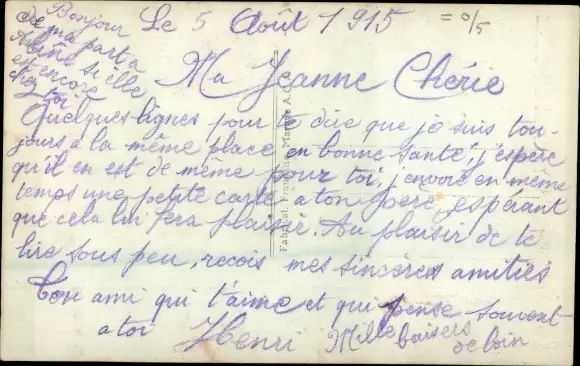 Bonjour
de ma part a
Aline si elle
est encore
chez toi
Le 5 Août 1915
= 0/5
Ma Jeanne Chérie
Quelques lignes pour te dire que je suis tou-
jours a la même place en bonne santé, j'espère
qu'il en est de même pour toi, j'envoie en même
temps une petite carte a ton père espérant
que cela lui fera plaisir. Au plaisir de te
lire sous peu, recois mes sincères amitiés
Ton ami qui t'aime et qui pense souvent
a toi Henri Mille baisers
de loin
Fabricat. Franç. Marque A.